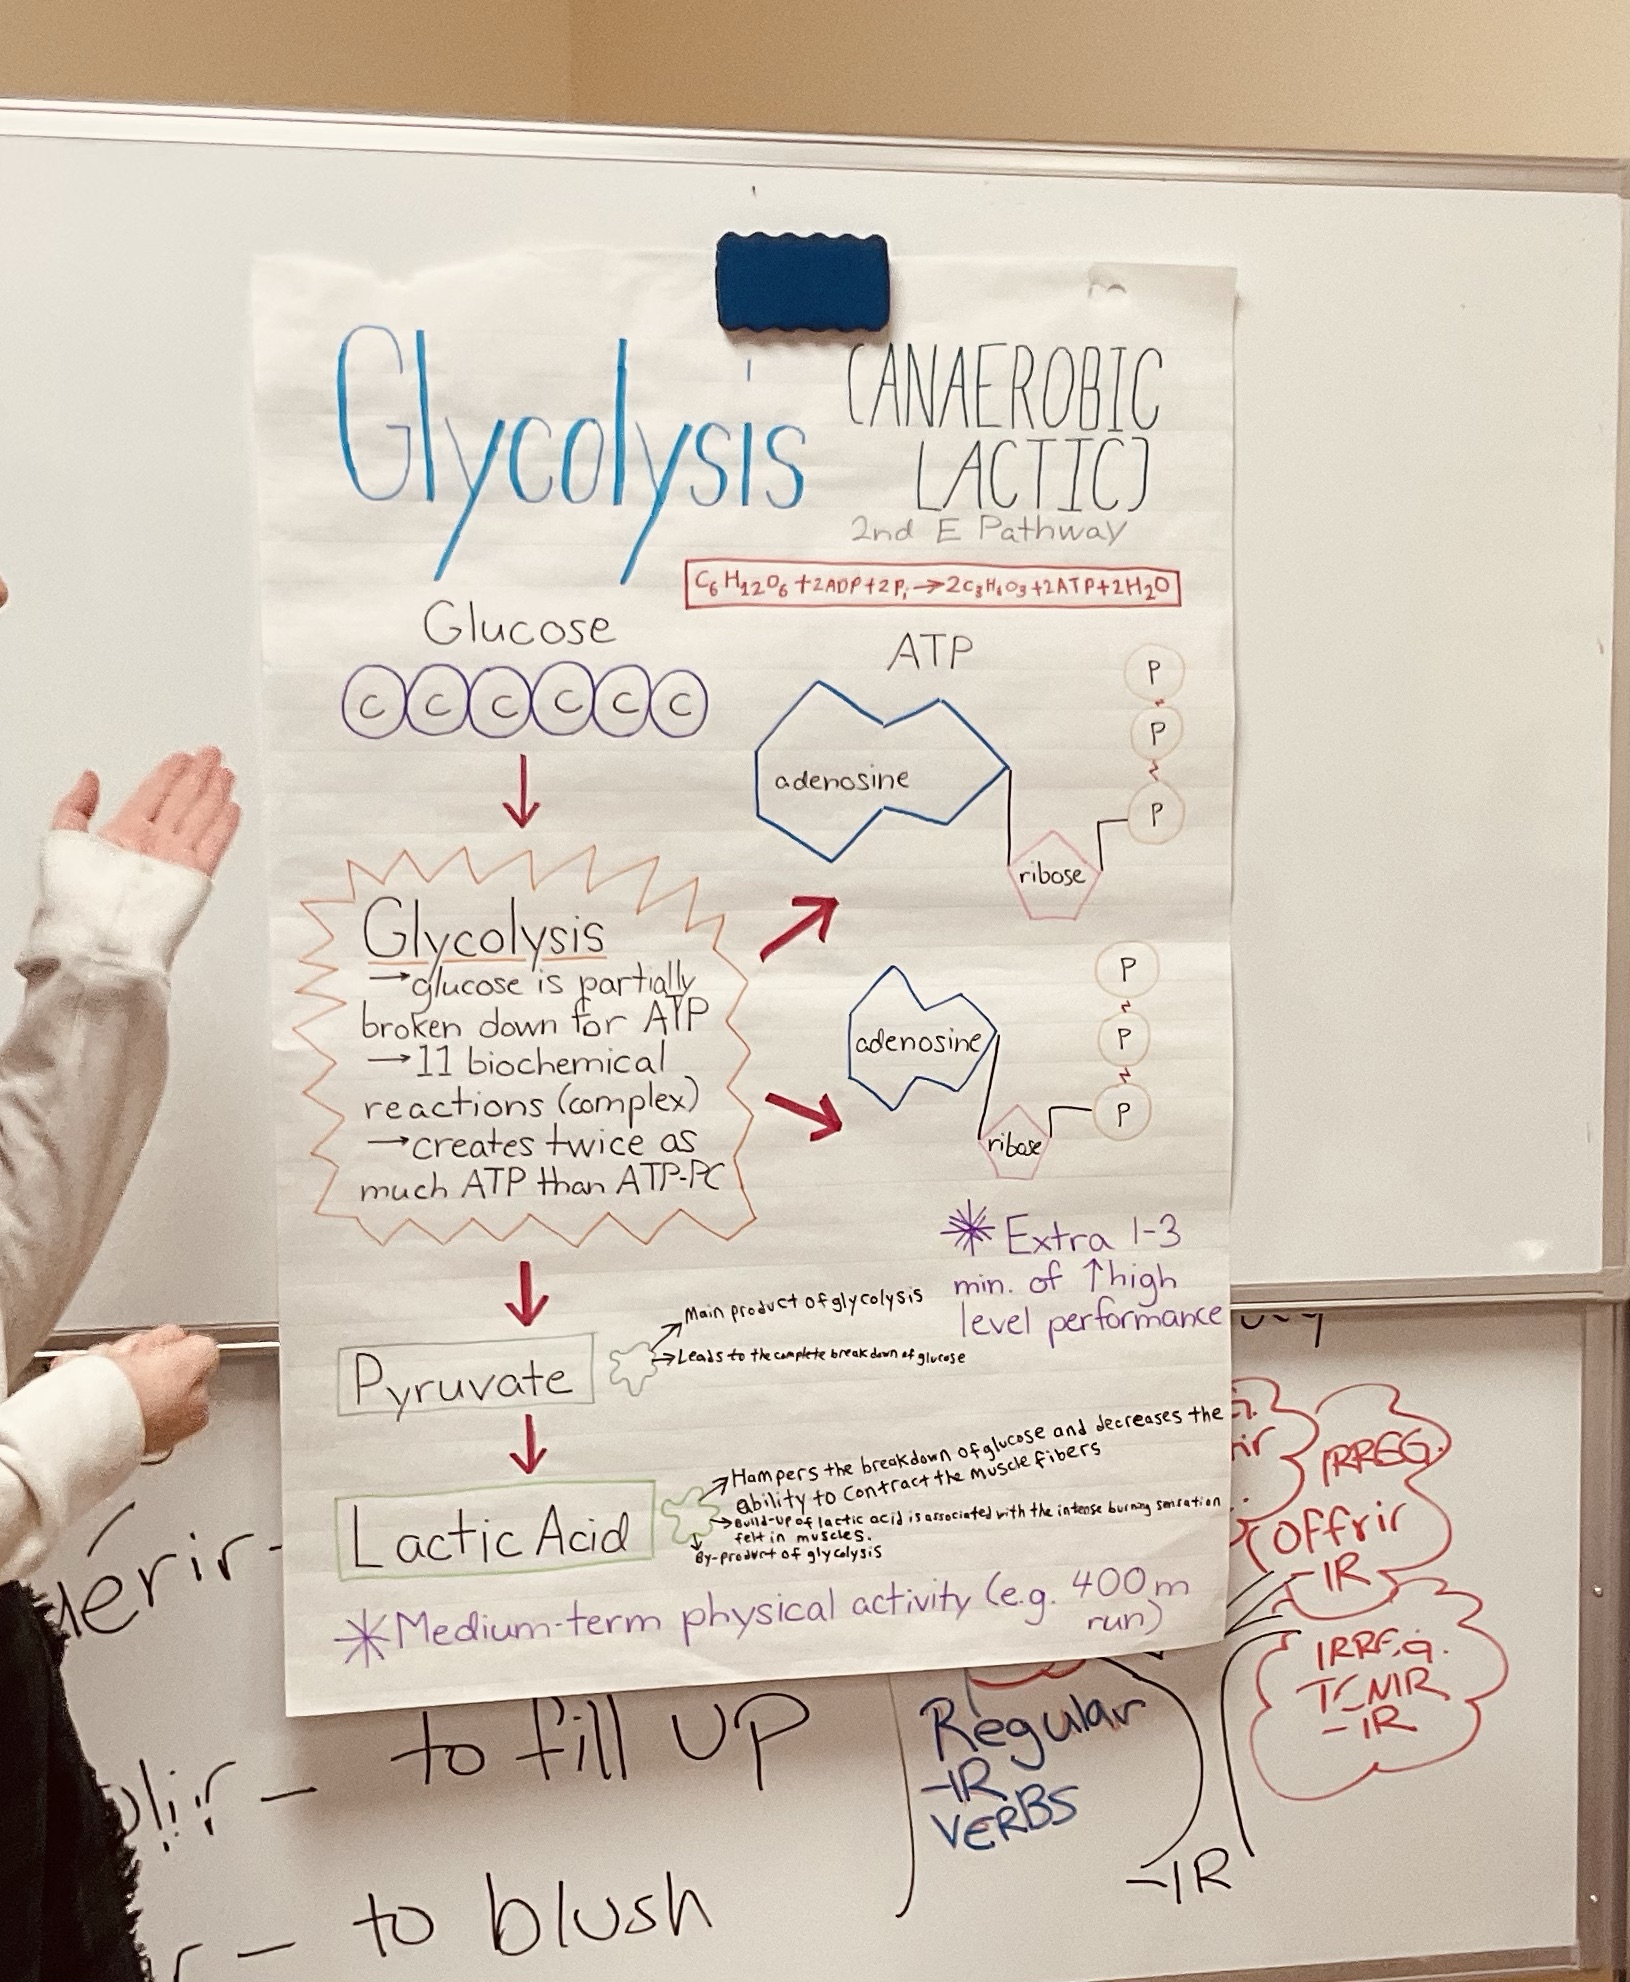 Glycolysis
(ANAEROBIC
LACTIC)
2nd E Pathway
C6H12O6+2ADP+2Pi→2C3H6O3+2ATP+2H2O
Glucose
C C C C C C
ATP
P
P
P
adenosine
ribose
Glycolysis
→glucose is partially
broken down for ATP
→11 biochemical
reactions (complex)
→creates twice as
much ATP than ATP-PC
P
P
P
adenosine
ribose
*Extra 1-3
min. of ↑high
level performance
Pyruvate
→Main product of glycolysis
→Leads to the complete breakdown of glucose
Lactic Acid
→Hampers the breakdown of glucose and decreases the
ability to contract the muscle fibers
→Build-up of lactic acid is associated with the intense burning sensation
felt in muscles.
→By-product of glycolysis
*Medium-term physical activity (e.g. 400m
run)
IRREG.
Offrir
-IR
IRREG.
TENIR
-IR
to fill UP
to blush
Regular
-IR
VERBS
-IR